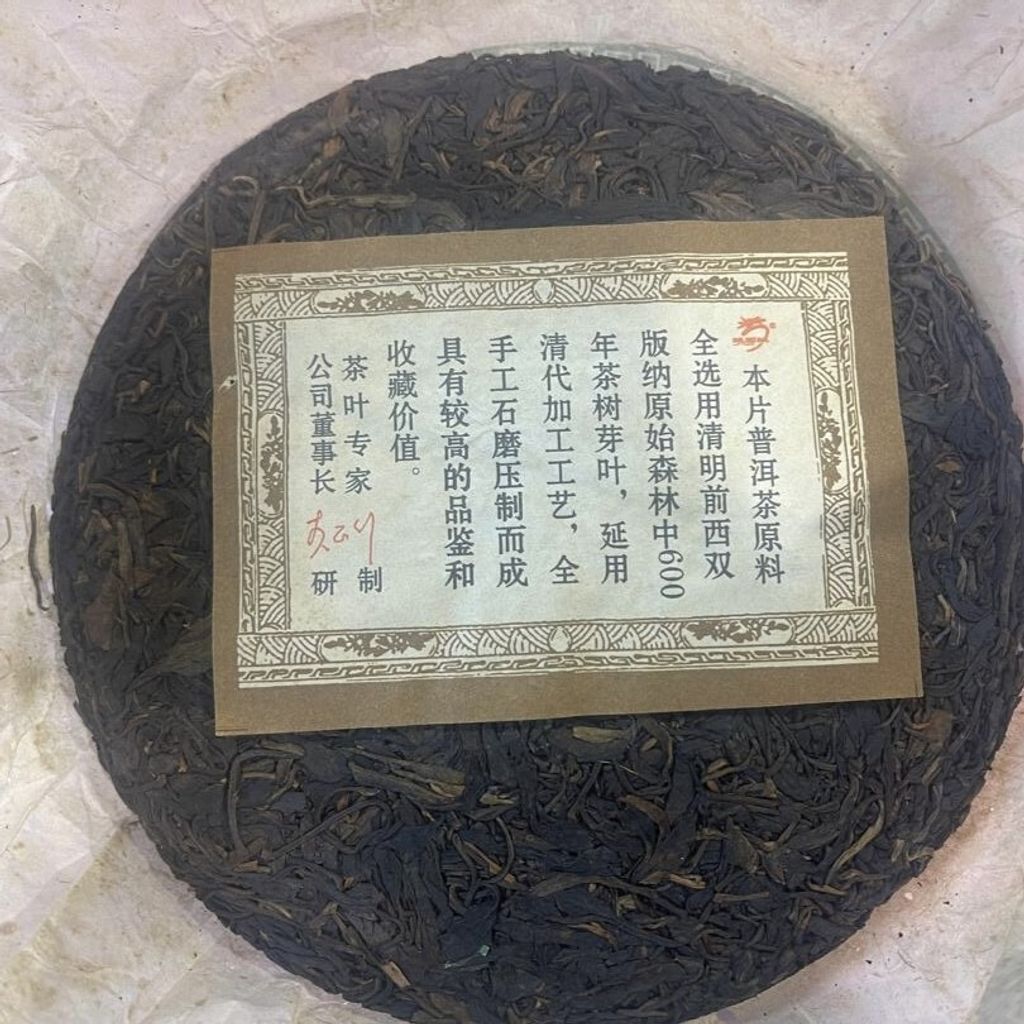 本片普洱茶原料
全选用清明前西双
版纳原始森林中600
年茶树芽叶，延用
清代加工工艺，全
手工石磨压制而成
具有较高的品鉴和
收藏价值。
茶叶专家
公司董事长
研制